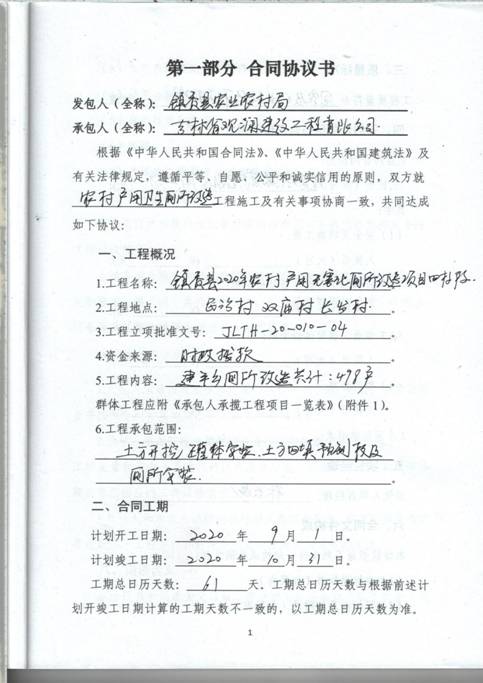 第一部分 合同协议书
发包人（全称）：镇赉县农业农村局
承包人（全称）：吉林省观润建设工程有限公司.
根据《中华人民共和国合同法》、《中华人民共和国建筑法》及
有关法律规定，遵循平等、自愿、公平和诚实信用的原则，双方就
农村户用卫生厕所改造工程施工及有关事项协商一致，共同达成
如下协议：
一、工程概况
1.工程名称：镇赉县2020年农村户用无害化厕所改造项目四标段.
2.工程地点：民治村 双庙村 长发村.
3.工程立项批准文号：JLTH-20-010-04。
4.资金来源：财政拨款。
5.工程内容：建平乡厕所改造共计：498户。
群体工程应附《承包人承揽工程项目一览表》（附件 1）。
6.工程承包范围：
土方开挖/罐体安装.土方回填 及
厕所安装.。
二、合同工期
计划开工日期：2020年9月1日。
计划竣工日期：2020年10月31日。
工期总日历天数：61天。工期总日历天数与根据前述计
划开竣工日期计算的工期天数不一致的，以工期总日历天数为准。
1